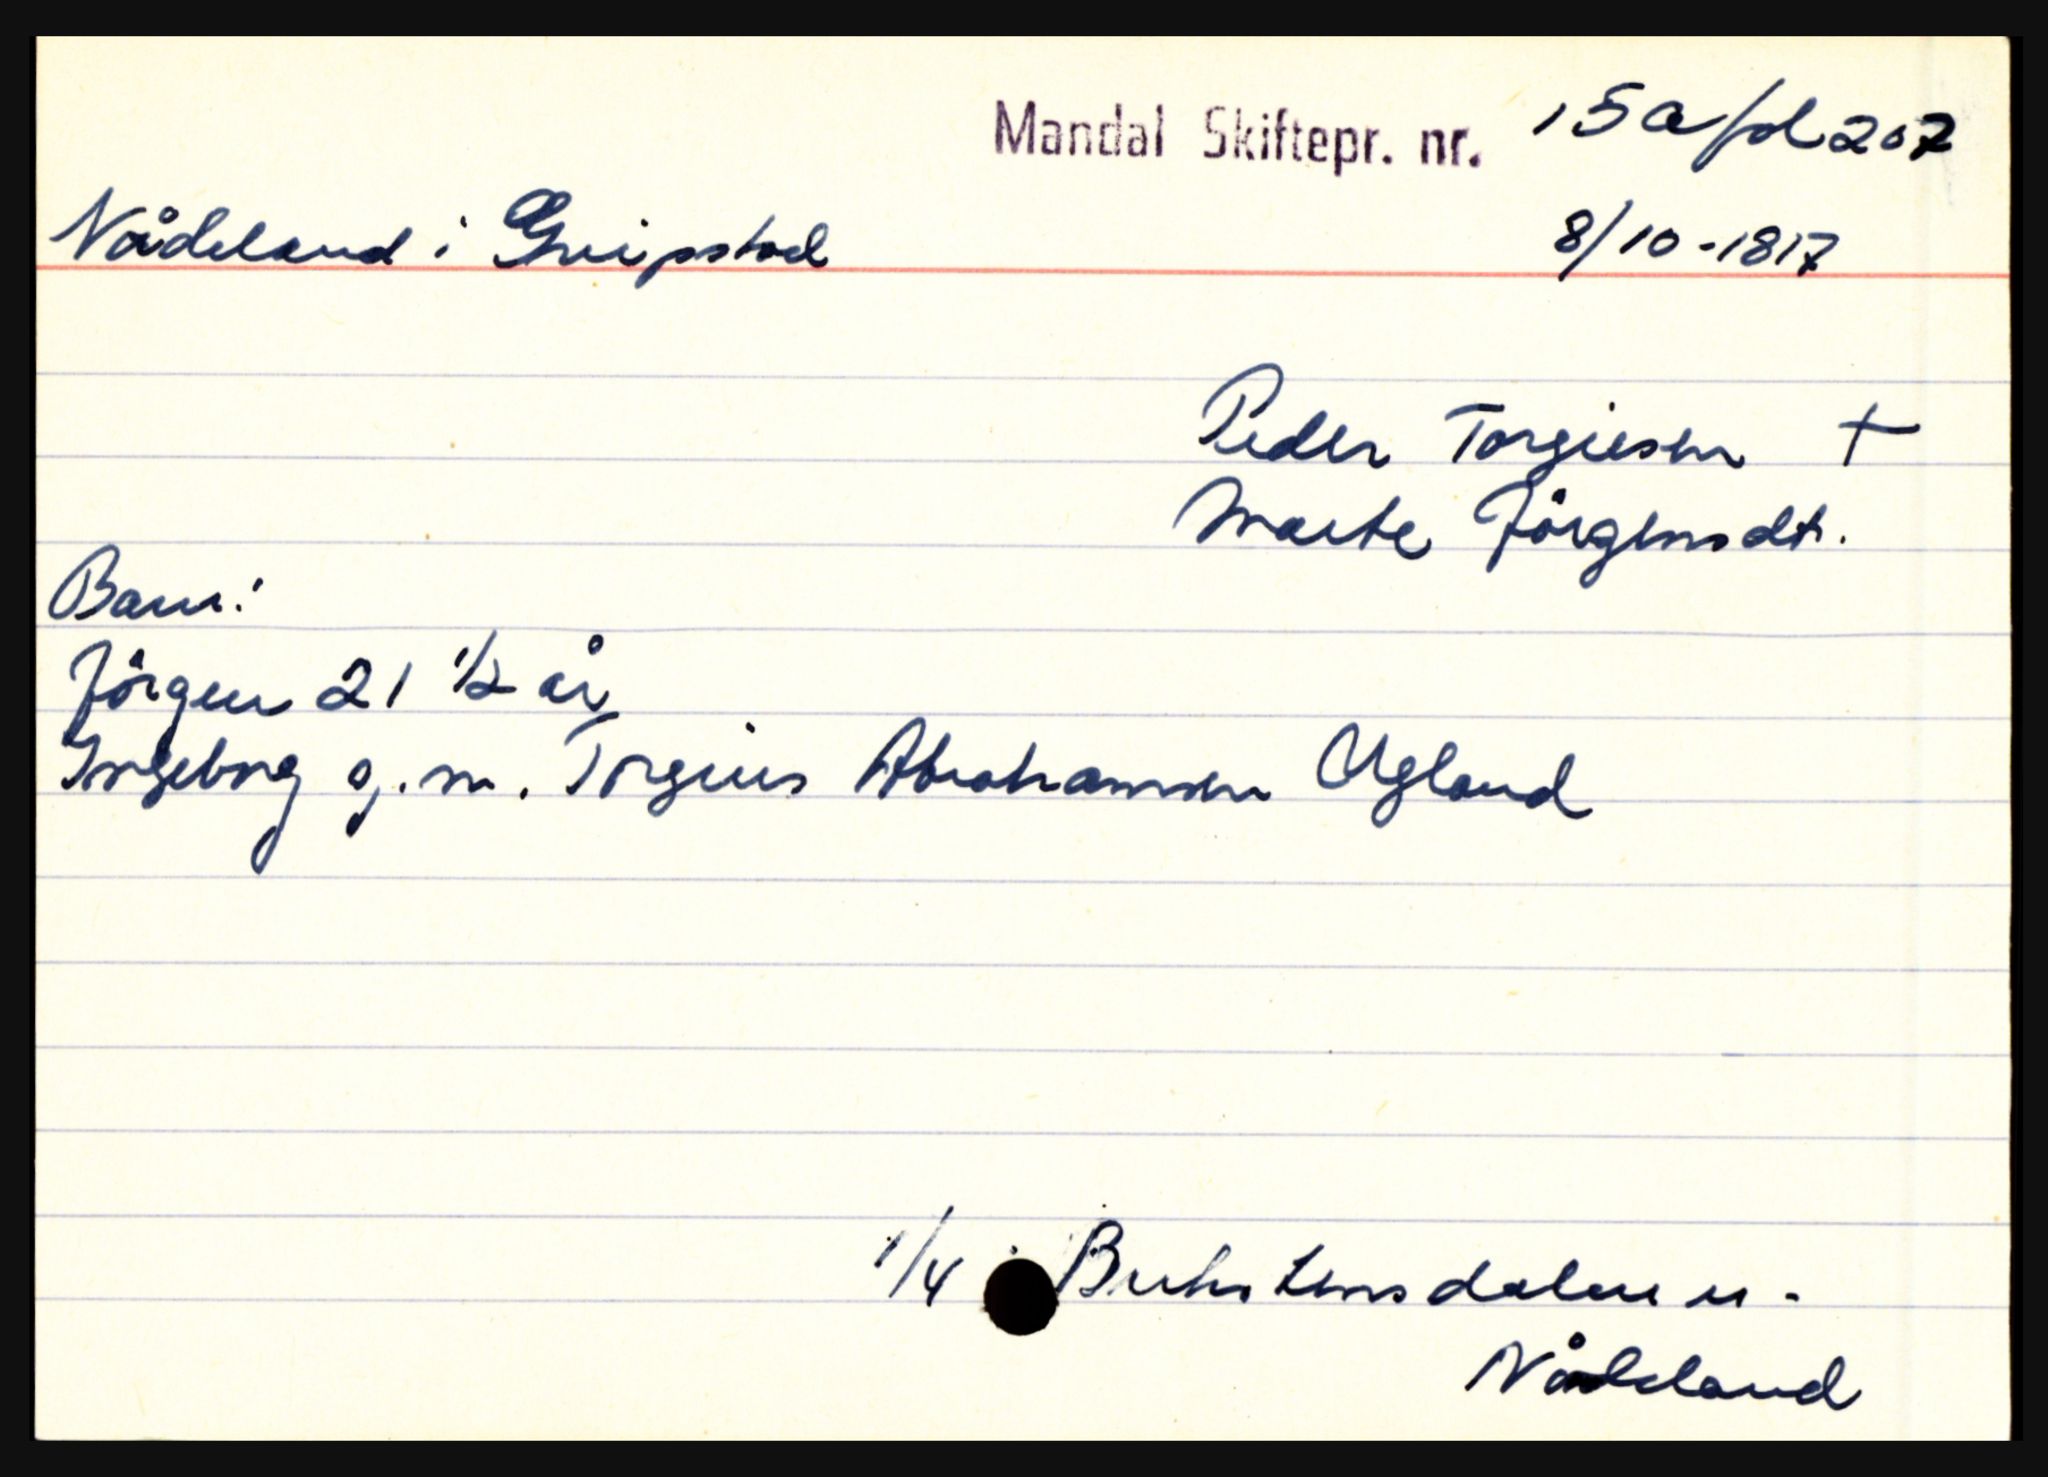 Mandal Skiftepr. nr. 15a fol 207
Nådeland i Gripstad 8/10-1817
Peder Torgiesen +
Marte Jörgensdt.
Barn:
Jörgen 21 1/2 år
Ingeborg g. m. Torgius Abrahamsen Ugland
1/4 dalen u.
Nådeland